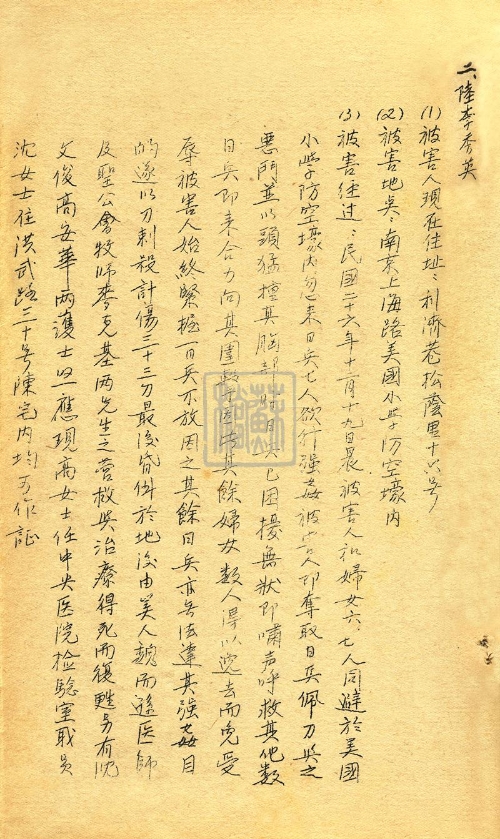 二、陸李秀英
(1) 被害人現在住址：利濟巷松蔭里十六号
(2) 被害地点：南京上海路美國小学防空壕內
(3) 被害经过：民國二十六年十二月十九日晨被害人和婦女六、七人同避於美國
小学防空壕內忽来日兵七人欲行强姦被害人即奪取日兵佩刀与之
惡鬥並以頭猛撞其胸部時日兵已困擾無狀即嘯声呼救其他数
日兵即来合力向其圍
其餘婦女数人得以逃去而免受
辱被害人始終緊握一日兵不放因之其餘日兵亦無法達其强姦目
的遂以刀刺殺計傷三十三刀最後昏倒於地後由美人魏而遜医師
及聖公會牧师麥克基两先生之营救与治療得死而復甦另有沈
文俊高安華两護士照應現高女士任中央医院检驗室職員
沈女士住洪武路三十号陳宅内均可作証
蘇